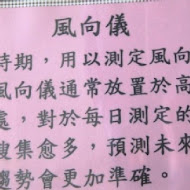 風向儀
時期，用以測定風向
風向儀通常放置於高
處，對於每日測定的
搜集愈多，預測未來
趨勢會更加準確。